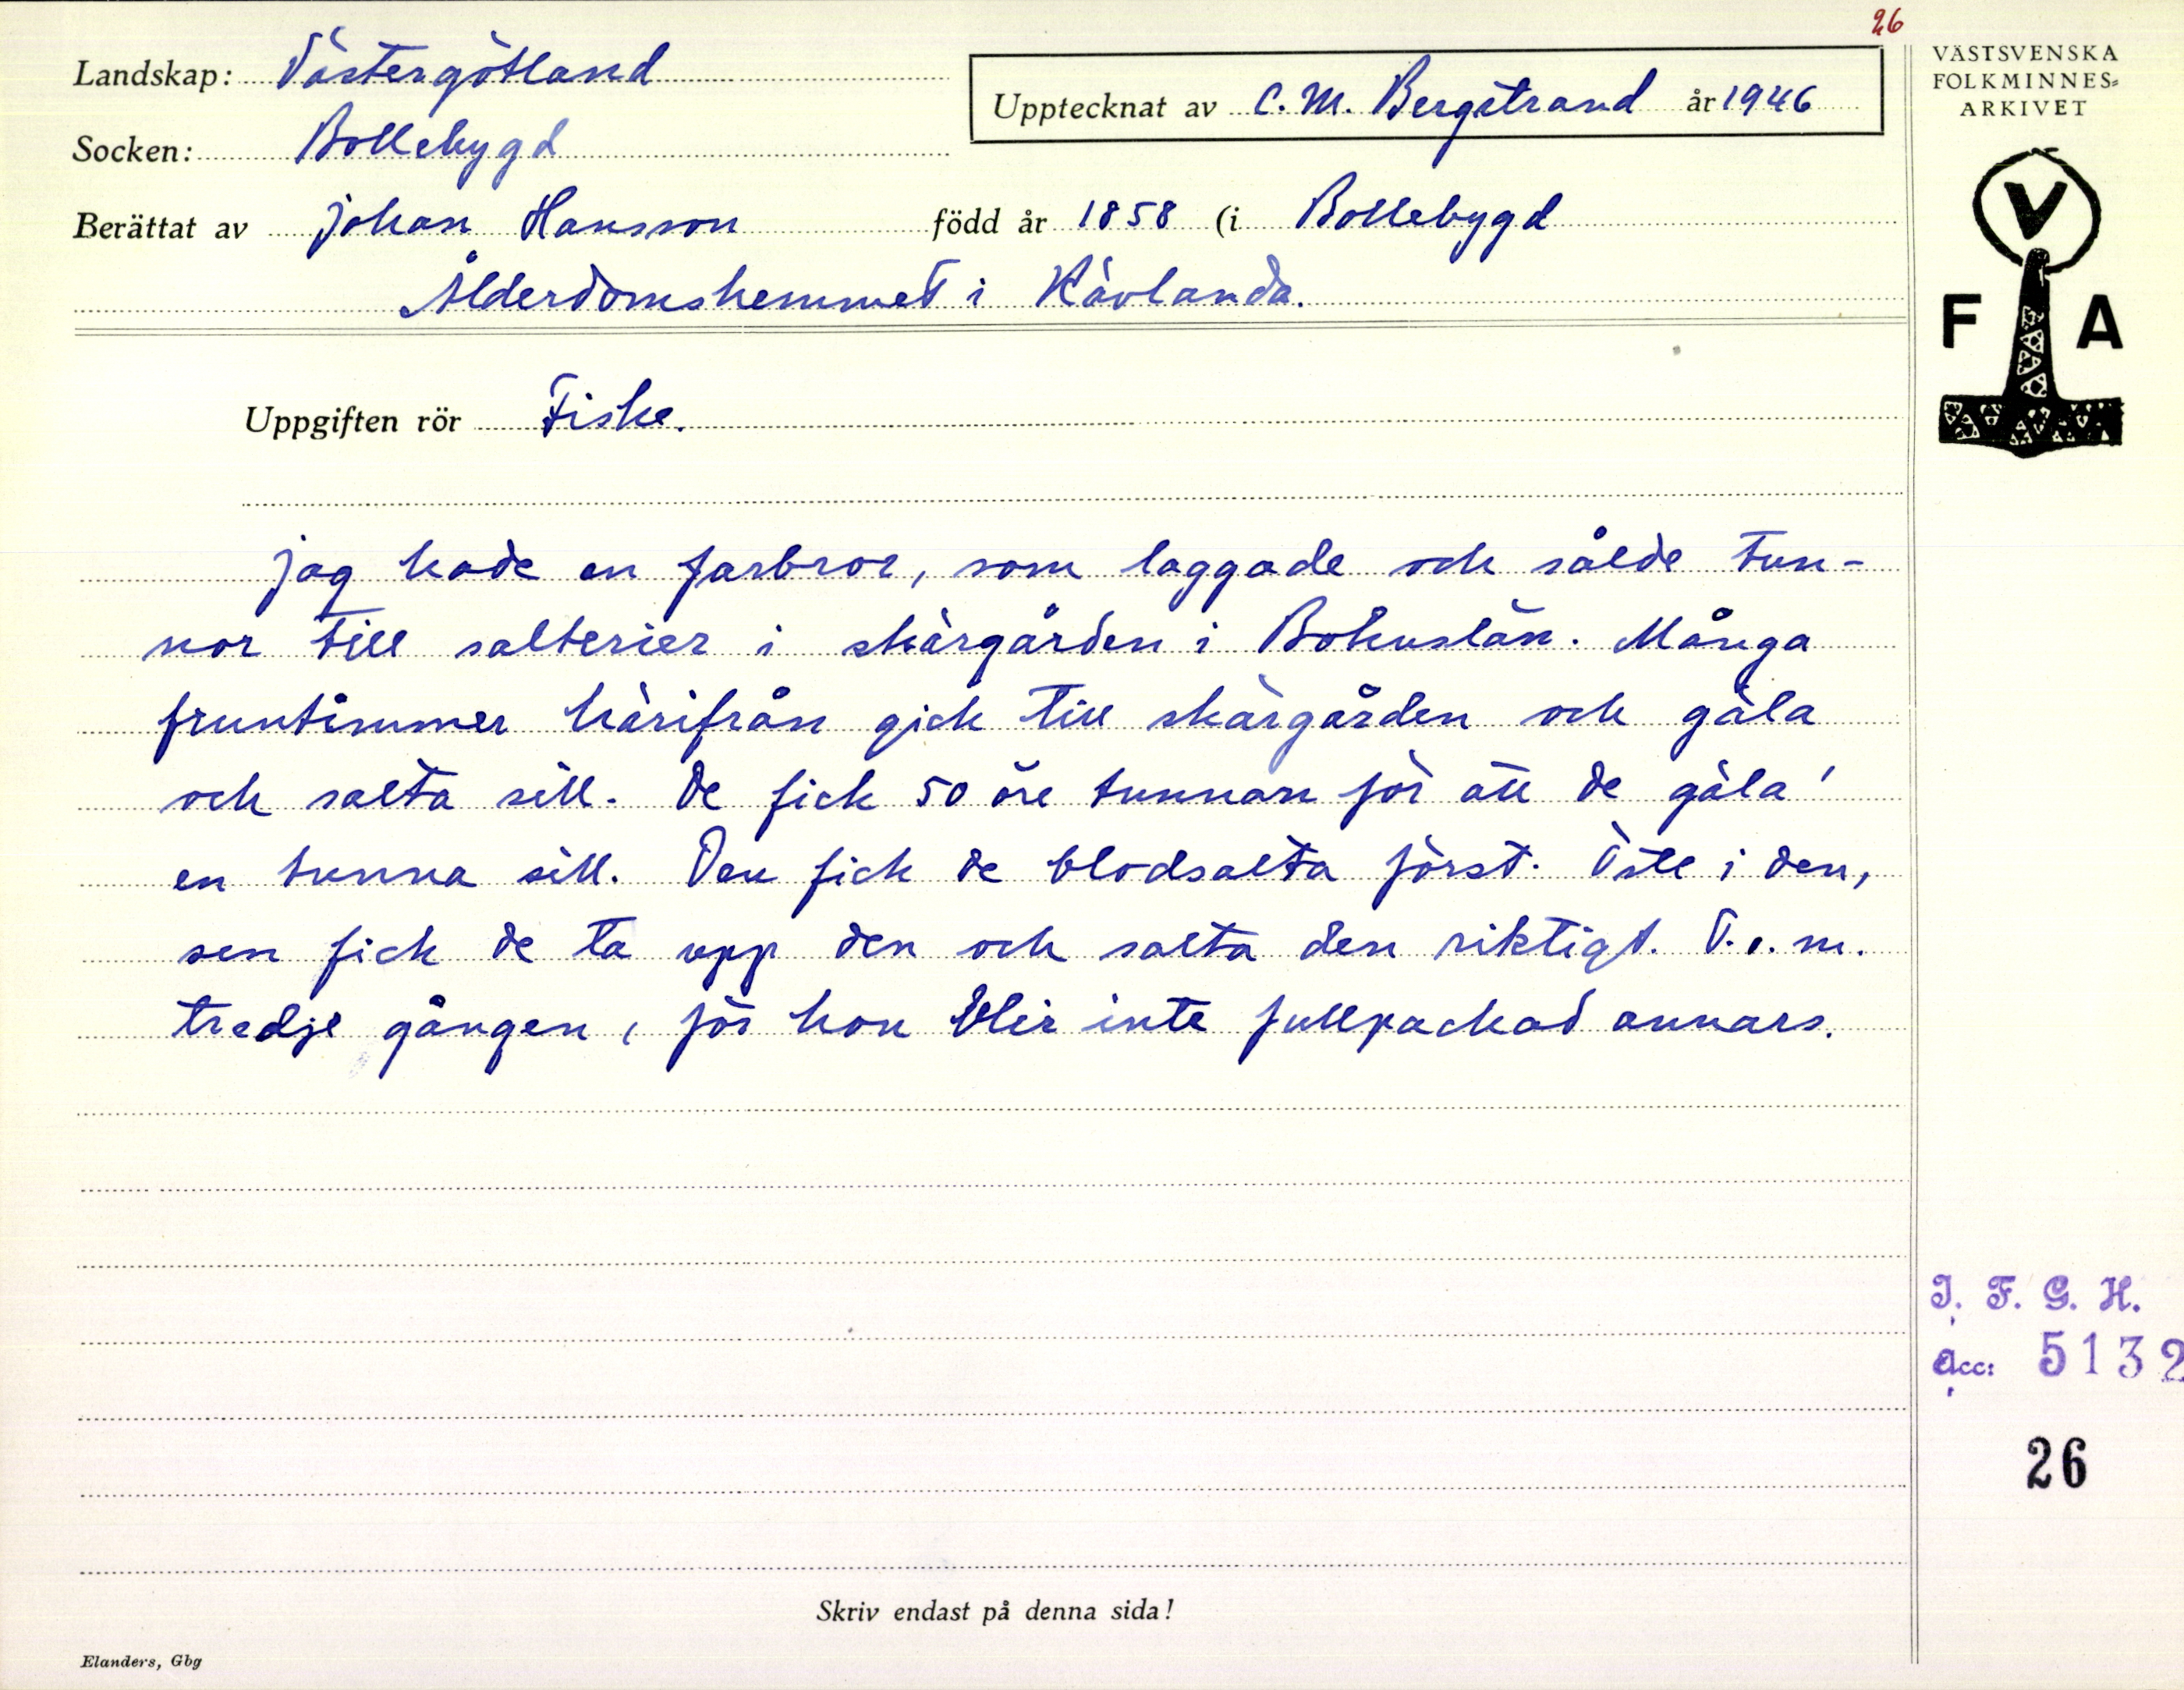 26
Landskap: Västergötland
Upptecknat av C. M. Bergstrand år 1946
VÄSTSVENSKA
FOLKMINNES=
ARKIVET
Socken: Bollebygd
Berättat av Johan Hansson född år 1858 (i Bollebygd
Ålderdomshemmet i Hävlanda.
V
F A
Uppgiften rör Fiske.
Jag hade en farbror, som laggade och sålde tun-
nor till salterier i skärgården i Bohuslän. Många
fruntimmer härifrån gick till skärgården och gäla
och salta sill. De fick 50 öre tunnan för att de gäla'
en tunna sill. Den fick de blodsalta först. Östе i den,
sen fick de ta upp den och salta den riktigt. T.o.m.
tredje gången, för hon blir inte fullpackad annars.
I. F. G. H.
Acc: 5132
26
Skriv endast på denna sida!
Elanders, Gbg